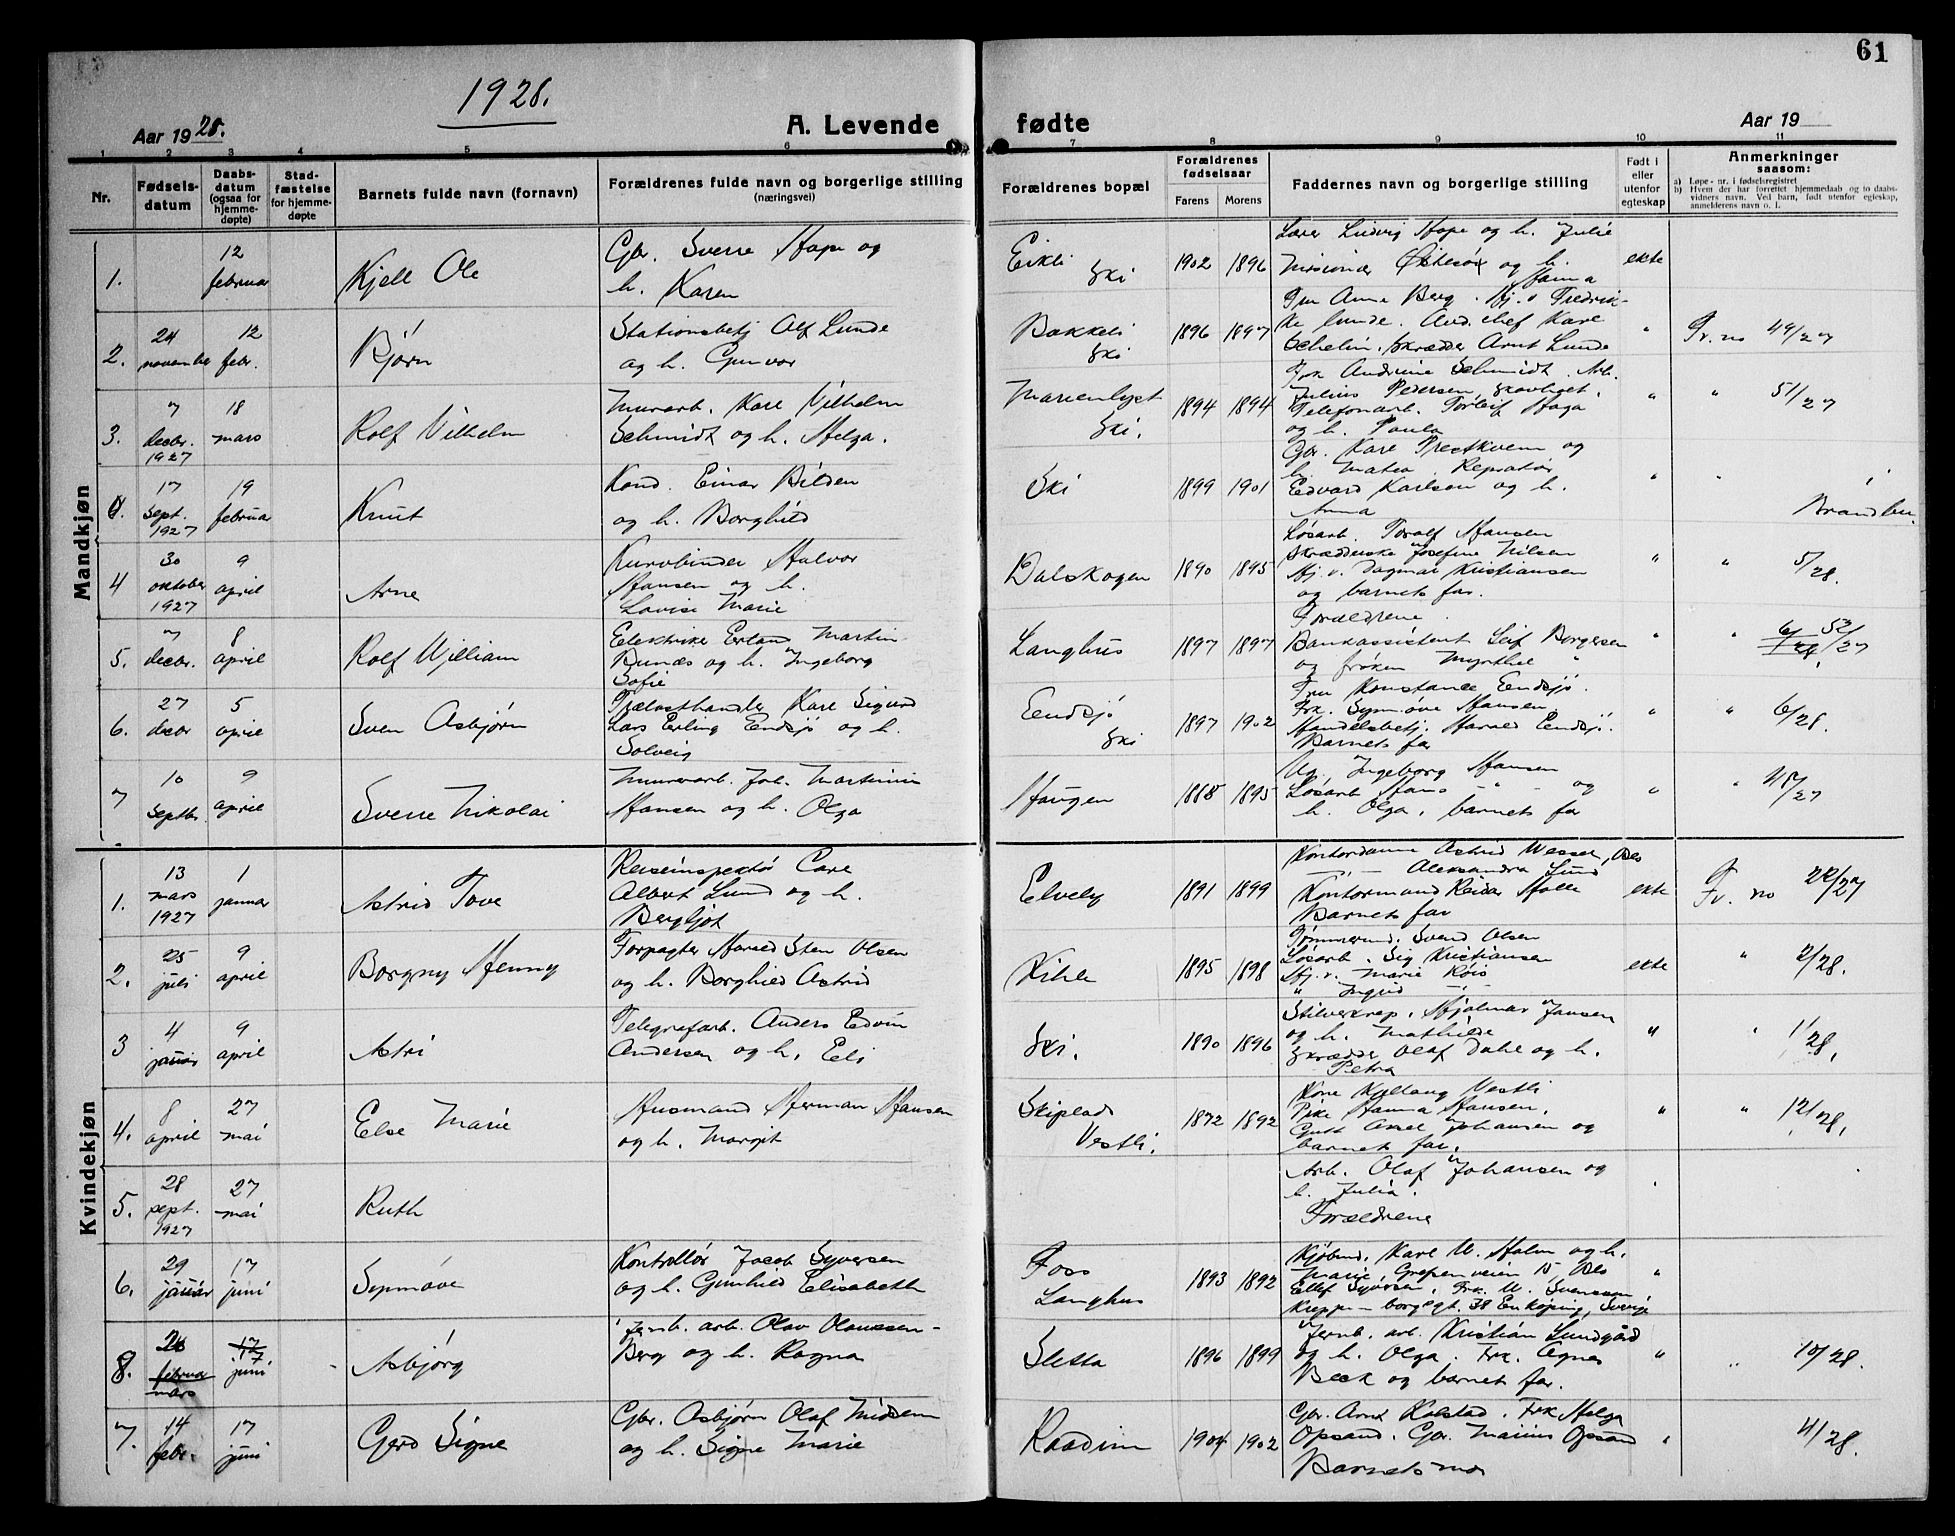 61
1928.
Aar 1928.
A. Levende
fødte
Aar 19
1 2 3 4 5 6 7 8 9 10 11
Nr.
Fødsels-
datum
Daabs-
datum
(ogsaa for
hjemme-
døpte)
Stad-
fæstelse
for hjemme-
døpte
Barnets fulde navn (fornavn)
Forældrenes fulde navn og borgerlige stilling
(næringsvei)
Forældrenes bopæl
Forældrenes
fødselsaar
Farens
Morens
Faddernes navn og borgerlige stilling
Født i
eller
utenfor
egteskap
Anmerkninger
saasom:
a) Løpe-nr. i fødselsregistret
b) Hvem der har forrettet hjemmedaab og to daabs-
vidners navn. Ved barn, født utenfor egteskap,
anmelderens navn o. l.
Mandkjøn
1.
12
februar
Kjell Ole
Gbr. Sverre Hope og
h. Karen
Eikli
Ski
1902 1896
Lærer Ludvig Hope og h. Julie
Misionær og h.
Hanna
ekte
2.
24
november
12
febr.
Bjørn
Stationsbetj Alf Lunde
og h. Gunvor
Bakkeli
Ski
1896 1897
Fru Anna Berg. Hj. v Fredrik-
ke Lunde. And. chef Karl
Schelin. Skrædder Arnt Lunde
"
Fr. no 49/27
3.
7
decbr.
1927
18
mars
Rolf Vilhelm
Murarb. Karl Vilhelm
Schmidt og h. Helga.
Marienlyst
Ski.
1894 1894
Frk Andrine Schmidt. Arb.
Julius Pedersen, Skovlivet.
Telefonarb. Torleif Haga
og h. Paula
"
" 51/27
17
sept.
1927
19
februar
Knut
Kond. Einar Bilden
og h. Borghild
Ski
1899 1901
Gbr. Karl Prestkvern og
h. Matea. Repratør
Edvard Karlsen og h.
Anna
"
"
Brandbu.
4
30
oktober
1927
9
april
Arne
Kurvbinder Halvor
Hansen og h.
Lovise Marie
Dalskogen
1890 1895
Løsarb. Toralf Hansen
Skrædderske Josefine Nilsen
Hj. v. Dagmar Kristiansen
og barnets far.
"
" 5/28.
5.
7
decbr.
8
april
Rolf William
Elektriker Erland Martin
Runæs og h. Ingeborg
Sofie
Langhus
1897 1897
Forældrene.
Bankassistent Leif Borgersen
og frøken Myrthel "
"
" 53/27
6.
27
decbr
5
april
Sven Asbjørn
Trælasthandler Karl Sigurd
Lars Erling Endsjø og h.
Solveig
Endsjø
Ski
1897 1902
Fru Konstance Endsjø.
Frk. Synnøve Hansen,
Handelsbetj. Harald Endsjø.
Barnets far
"
" 6/28.
7
10
septbr
9
april
Sverre Nikolai
Murerarb. Joh. Martinius
Hansen og h. Olga
Haugen
1888 1895
Ug. Ingeborg Hansen
Løsarb Hans - " - og
h. Olga, barnets far
"
" 45/27
Kvindekjøn
1.
13
mars
1927
1
januar
Astrid Tove
Reiseinspektør Carl
Albert Lund og h.
Bergljot
Elveby
1891 1899
Kontordame Astrid Wessel, Oslo
Aleksandra Lund
Kontormand Reidar Holle
Barnets far
ekte
Fr. no 22/27
2.
25
juli
9
april
Borgny Henny
Forpagter Harald Sten Olsen
og h. Borghild Astrid
Kihle
1895 1898
Tømmermd. Svend Olsen
Løsarb. Sig Kristiansen
Hj. v. Marie Røis
" Ingrid - " -
ekte
" 2/28.
3
4
januar
9
april
Astri
Telegrafarb. Anders Edvin
Andersen og h. Eli
Ski.
1890 1896
Stilverksrep. Hjalmar Jansen
og h. Mathilde
Skrædder Olaf Dahl og h.
Petra
"
" 1/28.
4.
8
april
27
mai
Else Marie
Husmand Herman Hansen
og h. Margit
Skiplads
Vestli.
1872 1892
Kone Kollaug Vestli
Pike Hanna Hansen,
Gutt Aksel Johansen og
barnets far.
"
" 12/28,
5.
28
sept.
1927
27
mai
Ruth
Arb. Olaf Johansen og
h. Julia.
Forældrene
6.
29
januar
17
juni
Synnøve
Kontrollør Jacob Syversen
og h. Gunhild Elisabeth
Foss
Langhus
1893 1892
Kjøbmd. Karl M. Holm og h.
Marie Grefsenveien 15 Oslo
Ellef Syversen. Frk. M. Svensson
Kreppe-borgsgt. 38 Enköping, Sverige
"
8.
26
februar
mars
17
17
juni
Asbjørg
Jernb. arb. Olav Olaussen-
Berg og h. Ragna
Sletta
1896 1899
Jernb. arb. Kristian Lundgård
og h. Olga. Frk. Agnes
Beck og barnets far.
"
" 10/28.
7.
14
febr.
17
juni
Gerd Signe
Gbr. Asbjørn Olaf Midsem
og h. Signe Marie
Raadim
1904 1902
Gbr. Arnt Kolstad. Frk Helga
Opsand. Gbr. Marius Opsand
Barnets mor
"
4/28.